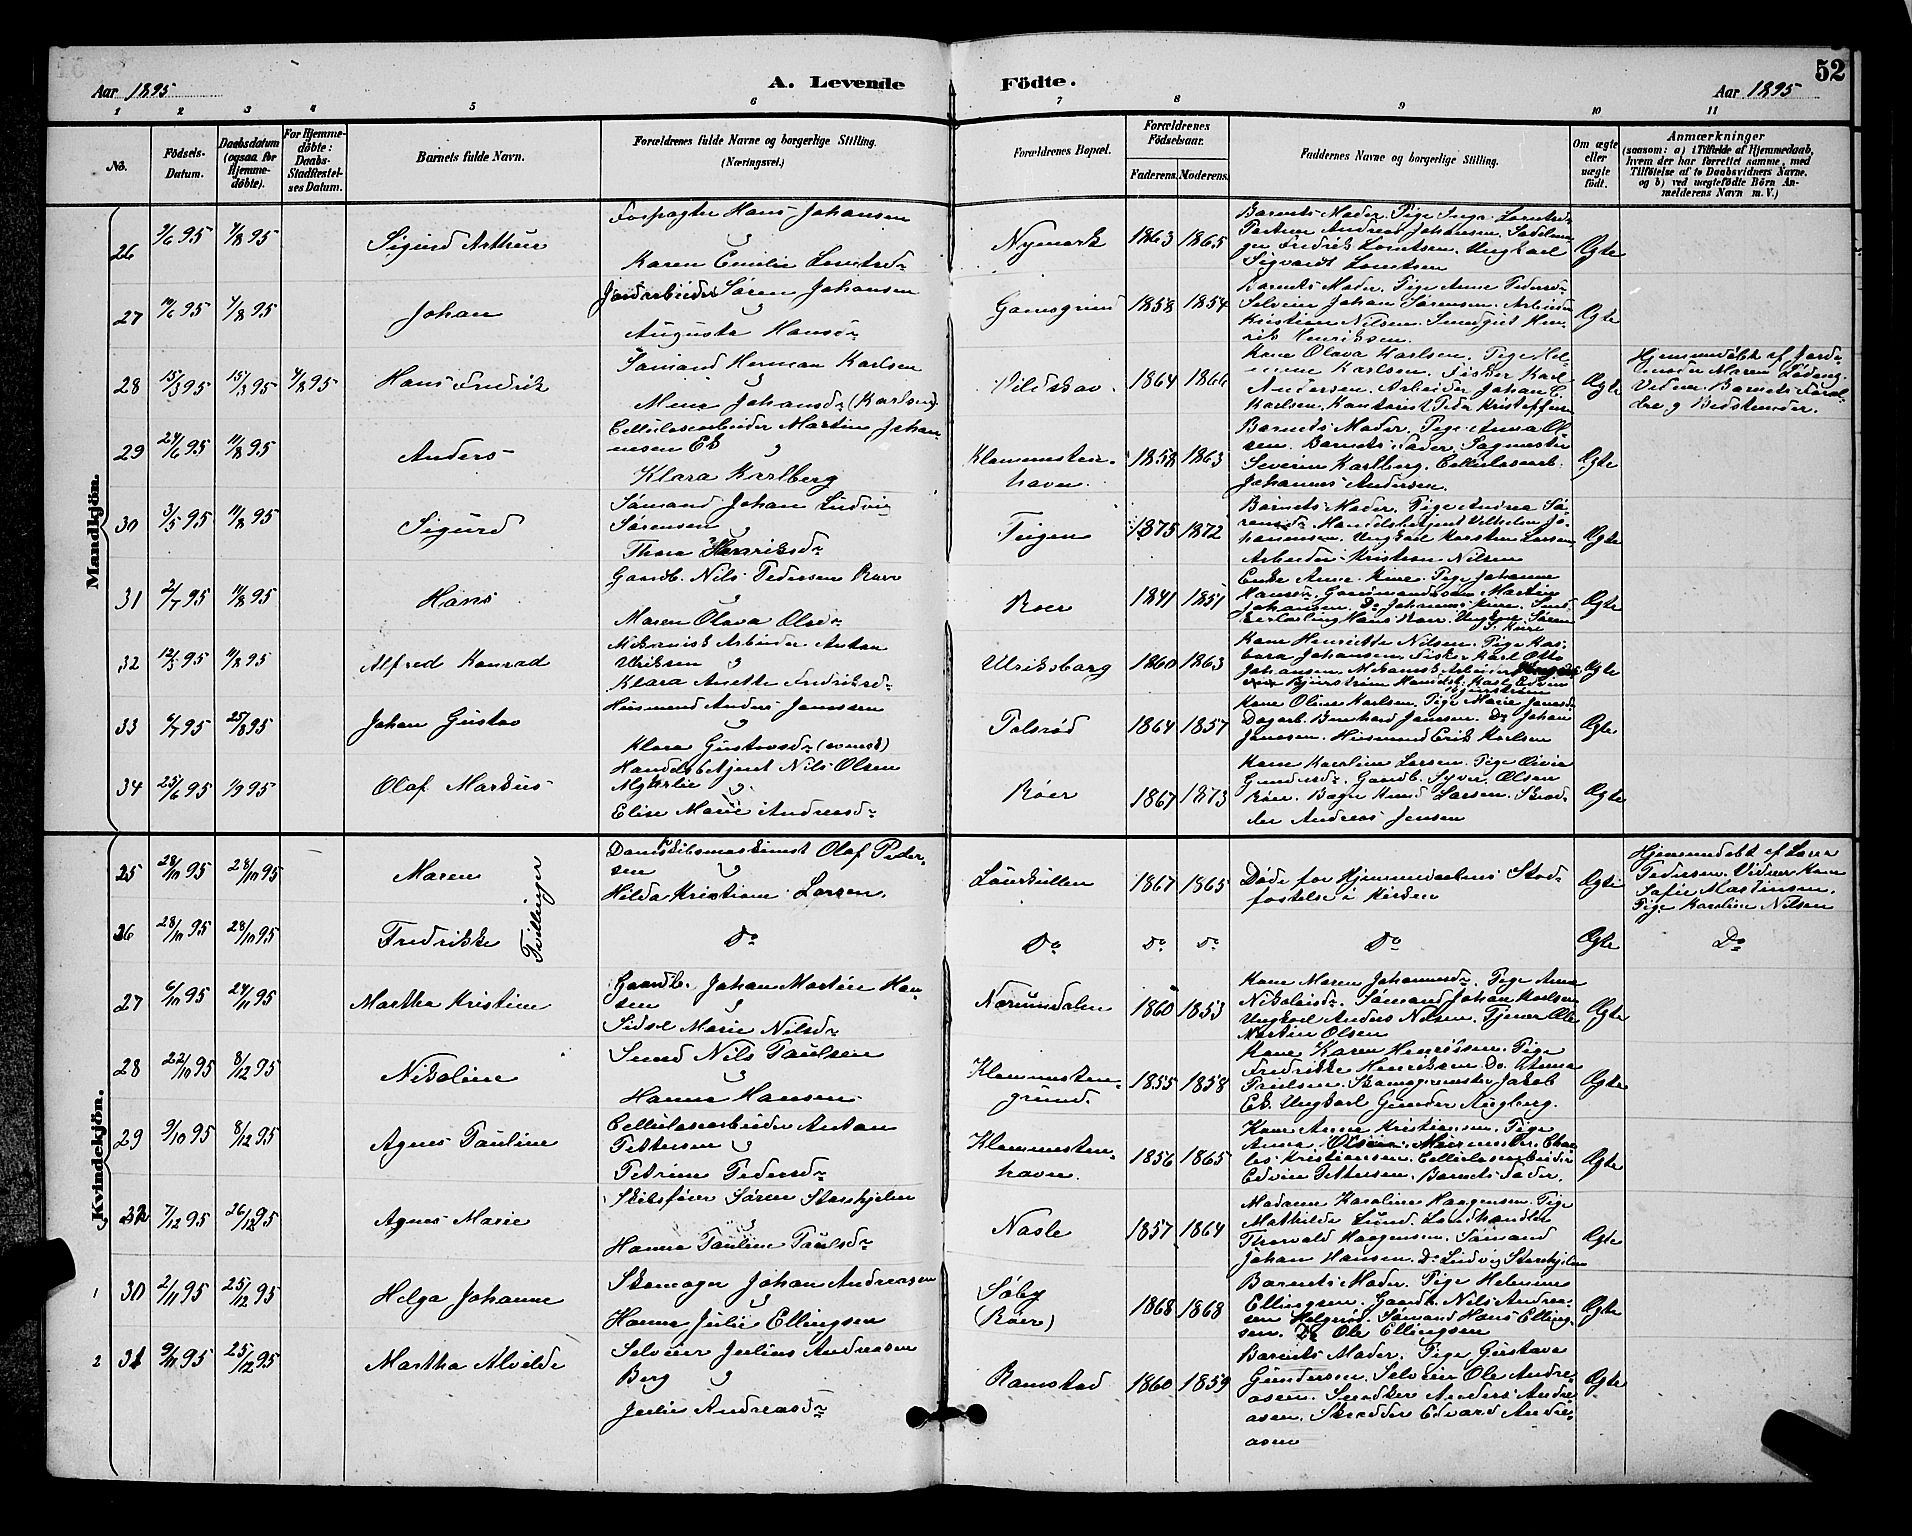 52
Aar 1895
A. Levende
Födte.
Aar 1895
1 2 3 4 5 6 7 8 9 10 11
No.
Födsels-
Datum.
Daabsdatum
(ogsaa for
Hjemme-
döbte).
For Hjemme-
döbte:
Daabs-
Stadfæstel-
ses Datum.
Barnets fulde Navn.
Forældrenes fulde Navne og borgerlige Stilling.
(Næringsvei.)
Forældrenes Bopæl.
Forældrenes
Födselsaar.
Faderens. Moderens.
Faddernes Navne og borgerlige Stilling.
Om ægte
eller
uægte
födt.
Anmærkninger
(saasom: a) i Tilfælde af Hjemmedaab,
hvem der har forrettet samme, med
Tilföielse af to Daabsvidners Navne,
og b) ved uægtefödte Börn An-
melderens Navn m. V.)
Mandkjön.
26 9/6 95 4/8 95 Sigurd Arthur
Forpagter Hans Johansen
Karen Emilie
Nymark 1863 1865
Barnets Moder. Pige Inga
Andreas Johansen.
Fredrik Ungkarl
Sigvardt
Ægte
27 4/8 95 Johan
Jordarbeider Søren Johansen
og
Augusta Hansdr
1858 1854
Barnets Moder. Pige Anne Pedersdr
Selveier Johan Sørensen. Arbeider
Kristian Nilsen. Hen-
rik Henriksen.
Ægte
28 15/3 95 15/3 95 4/8 95 Hans Fredrik
Sømand Herman Karlsen
og
Johansdr (Karlsen)
Vildskov 1864 1866
Kone Olava Karlsen. Pige Hel-
mine Karlsen. Fisker Karl
Andersen. Arbeider Johan C.
Karlsen. Kontorist Peder Kristoffersen
Ægte
Hjemmedöbt af Jorde-
moder Maren
Vidner Barnets Foræl-
dre og Bedstemoder.
29 24/6 95 11/8 95 Anders
Cellulosearbeider Martin Johan-
nesen Ek
og
Klara Karlberg
Klemmetsten-
havn. 1858 1863
Barnets Moder. Pige Anna Ol-
sen. Barnets Fader. Sagmester
Severin Karlberg. Cellulosearb.
Johannes Andersen.
Ægte
30 3/5 95 11/8 95 Sigurd
Sømand Johan Ludvig
Sørensen og
Thora Henriksdr
Teigen 1875 1872
Barnets Moder. Pige Andrea Sø-
rensdr Handelsbetjent Vilhelm Jo-
hannesen. Ungkarl Karsten Larsen.
Arbeider Kristian Nilsen
Ægte
31 2/7 95 11/8 95 Hans
Gaardb. Nils Pedersen Roer
og
Maren Olava Olsdr
Roer 1841 1851
Enke Anne Kure. Pige Johanne
Hansdr. Gaardmandssøn Martin
Johansen. Do Johannes Kure.
Hans Roer. Ungkarl Søren
Kure
Ægte
32 12/5 95 11/8 95 Alfred Konrad
Mekanisk Arbeider Anton
Ulriksen og
Klara Anette Fredriksdr
Ulriksborg 1860 1863
Kone Henriette Nilsen. Pige Kas-
para Johansen. Fisker Karl Otto
Johansen. Mekanisk Arbeider
Bjørnstrøm Karl Edvin
Bjørnstrøm
Ægte
33 6/7 95 25/8 95 Johan Gustav
Husmand Anders Jansen
og
Klara Gustavsdr (svensk)
Tolsrød 1864 1857
Kone Oline Karlsen. Pige Marie Jansdr
Dagarb. Bernhard Jansen. Do Johan
Jansen. Husmand Erik Karlsen
Ægte
34 25/6 95 1/9 95 Olaf Markus
Handelsbetjent Nils Olsen
og
Elise Marie Andreasdr
Roer 1867 1873
Kone Karoline Larsen. Pige
Gundersdr. Gaardb. Syver Olsen
Roer. Bager Knud Larsen. Skræd-
der Andreas Jensen
Ægte
Kvindekjön.
25 28/10 95 28/10 95 Maren
Tvillinger
Dampskibsmaskinist Olaf Peder-
sen og
Hilda Kristiane Larsen.
1867 1865
Døde før Hjemmedaabens Stad-
fæstelse i Kirken
Ægte
Hjemmedöbt af
Pedersen. Vidner Kone
Sofie Martinsen.
Pige Karoline Nilsen
26 28/10 95 28/10 95 Fredrikke
Do
Do
Do Do
Do
Ægte
Do
27 6/10 95 24/11 95 Martha Kristine
Gaardb. Johan Martin Han-
sen og
Sidsel Marie Nilsdr
1860 1853
Kone Maren Johannesdr. Pige Anna
Nikolaisdr. Sømand Johan Karlsen
Ungkarl Anders Nilsen. Tjener Ole
Martin Olsen
Ægte
28 22/10 95 8/12 95 Nikoline
Smed Nils Paulsen
og
Hanna Hansen
Klemmetsten-
grund. 1855 1858
Kone Karen Henriksen. Pige
Fredrikke Henriksen. Do Anna
Paulsen. Skomagermester Jakob
Ek. Ungkarl Gunder Augberg.
Ægte
29 9/10 95 8/12 95 Agnes Pauline
Cellulosearbeider Anton
Pettersen og
Petrine Pedersdr
Klemmetsten-
havn 1856 1865
Kone Anne Kristiansen. Pige
Anna Olsen. Murmester Char-
les Kristiansen. Cellulosearbeider
Edvin Pettersen. Barnets Fader.
Ægte
32 7/12 95 26/12 95 Agnes Marie
Skibsfører Søren Storehjelm
og
Hanna Pauline Paulsdr
Nasle 1857 1864
Madame Karoline Haagensen. Pige
Mathilde Lund. Landhandler
Thorvald Haagensen. Sømand
Johan Hansen. Do Ludvig Storehjelm
Ægte
1 30 2/11 95 25/12 95 Helga Johanne
Skomager Johan Andreasen
og
Hanna Julie Ellingsen
Søby
Roer) 1868 1868
Barnets Moder. Pige Helmine
Ellingsen. Gaardb. Nils Andrea-
sen Helgerød. Sømand Hans Elling-
sen. Do Ole Ellingsen
Ægte
2 31 9/11 95 25/12 95 Martha Alvilde
Selveier Julius Andreasen
Berg og
Julie Andreasdr
Ramstad 1860 1859
Barnets Moder. Pige Gustava
Gundersen. Selveier Ole Andre-
asen. Snedker Anders Andre-
asen. Skrædder Edvard Andre-
asen
Ægte